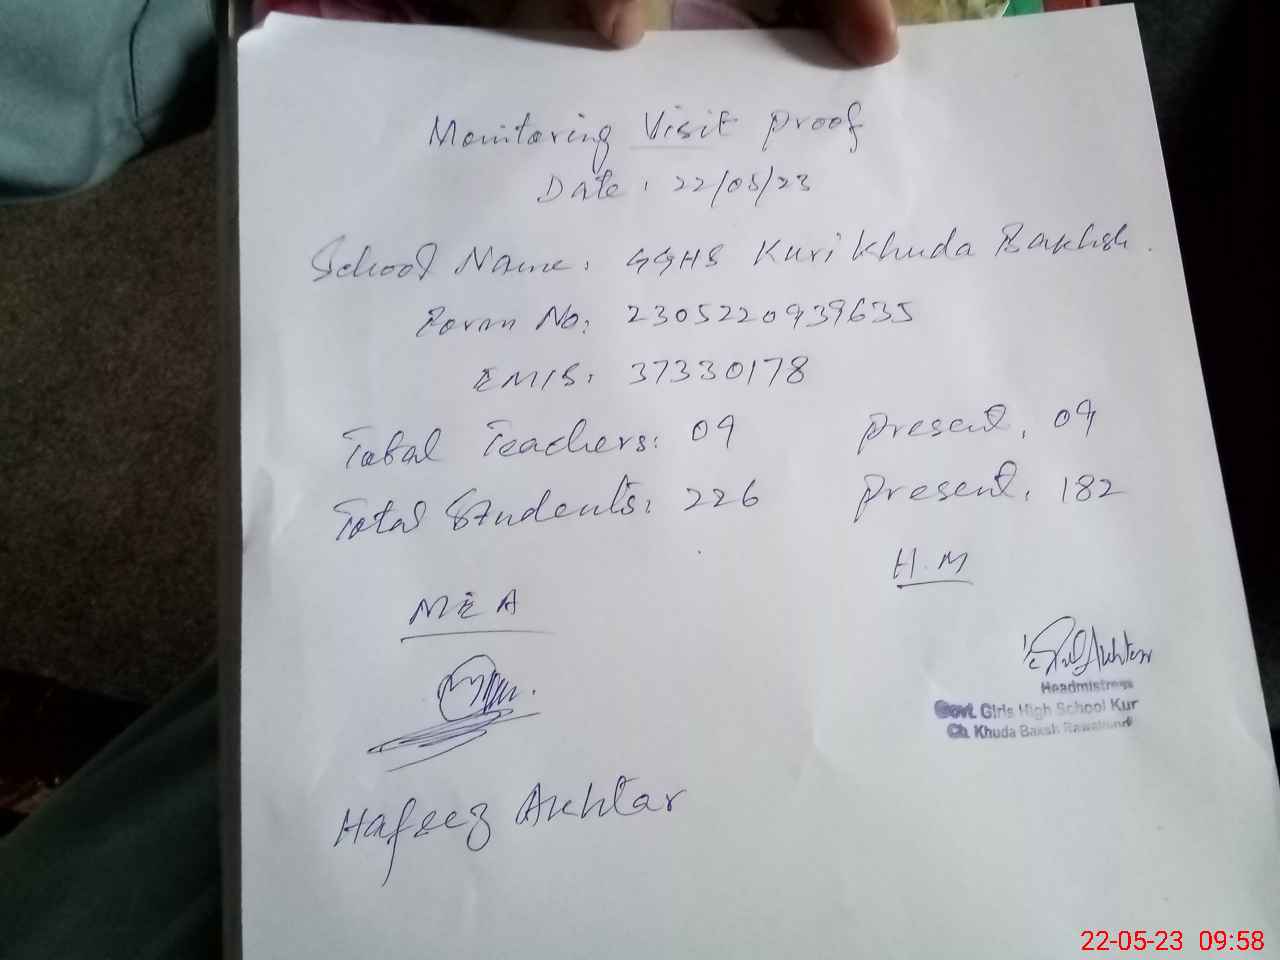 Monitoring Visit Proof
Date: 22/05/23
School Name: GGHS Kuri Khuda Bakhsh.
Form No: 2305220939635
EMIS: 37330178
Total Teachers: 09 Present: 09
Total Students: 226 Present: 182
H.M
MEA
Akhtar
Headmistress
Govt. Girls High School Kur
Ch. Khuda Baxsh Rawalpindi
Hafeez Akhtar
22-05-23 09:58